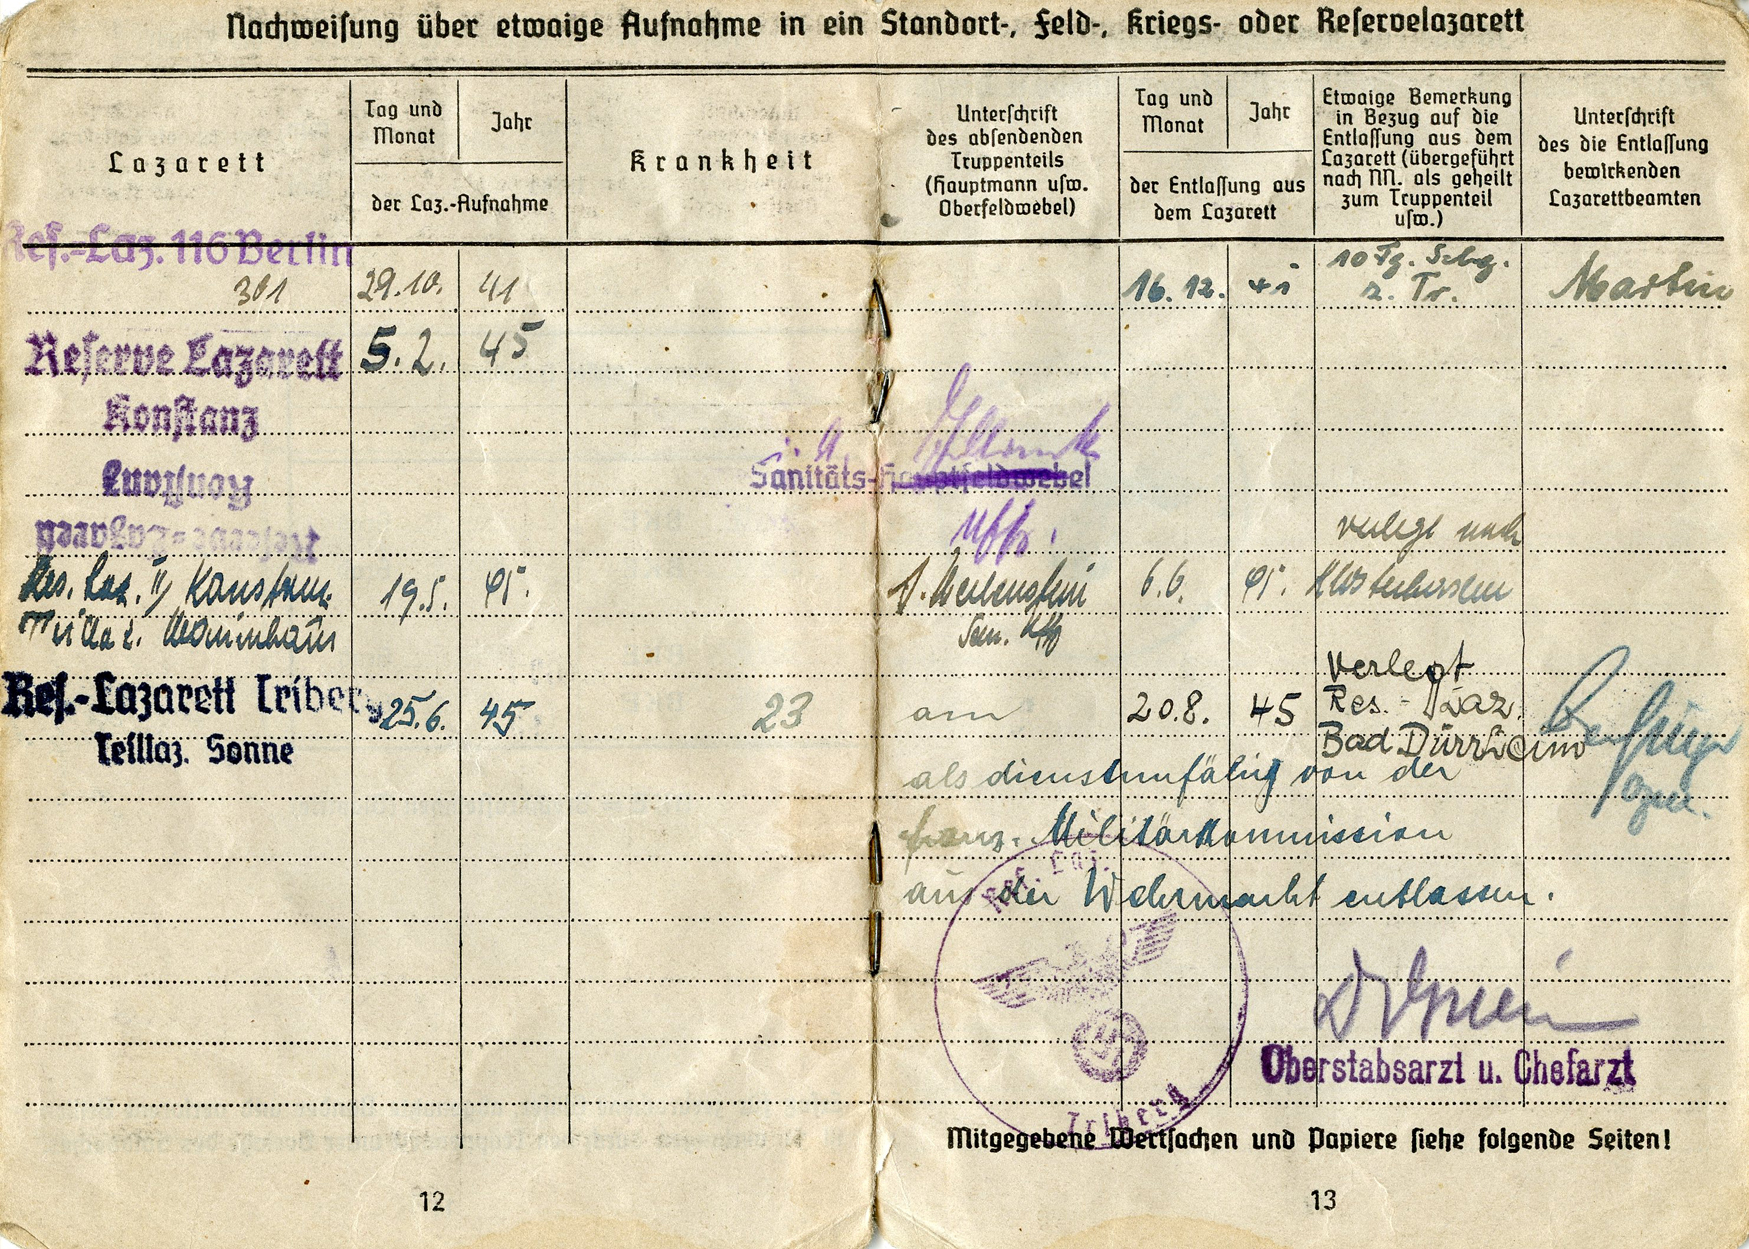 Nachweisung über etwaige Aufnahme in ein Standort-, Feld-, Kriegs- oder Reservelazarett
Lazarett
Tag und
Monat
Jahr
der Laz.-Aufnahme
Krankheit
Unterschrift
des absendenden
Truppenteils
(Hauptmann usw.
Oberfeldwebel)
Tag und
Monat
Jahr
der Entlassung aus
dem Lazarett
Etwaige Bemerkung
in Bezug auf die
Entlassung aus dem
Lazarett (übergeführt
nach NN. als geheilt
zum Truppenteil
usw.)
Unterschrift
des die Entlassung
bewirkenden
Lazarettbeamten
Res.-Laz. 116 Berlin
301 29.10. 41 16.12. 41 10 Tg. z. Tr. Martin
Reserve Lazarett 5.2. 45
Konstanz
i. A.
Sanitäts-Hauptfeldwebel
Konstanz
Uffz.
Reserve-Lazarett
verlegt nach
Res. Laz. II Konstanz 19.5. 45. 6.6. 45.
San. Uffz
Res.-Lazarett Triberg 25.6. 45 23 am 20.8. 45 verlegt
Res.-Laz.
Bad Dürrheim
Teillaz. Sonne
als dienstunfähig von der
franz. Militärkommission
aus der Wehrmacht entlassen.
Res. Laz.
Triberg
Oberstabsarzt u. Chefarzt
Mitgegebene Wertsachen und Papiere siehe folgende Seiten!
12
13